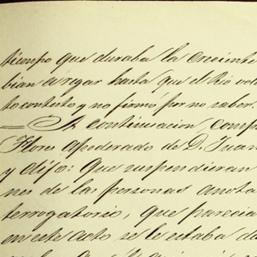 tiempo que duraba la creciente
bian a regar hasta que el Rio vol
to contexto y no firmo por no saber.
= A continuacion, comp
Flores apoderado de D. Juan
y dijo: Que suspendieran
nes de las personas anota
terrogatorio, que parecia
en este acto se le estaba da